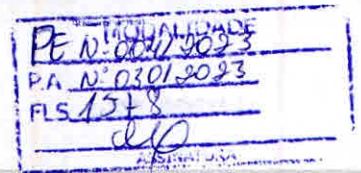 MODALIDADE
PE Nº 004/2023
P.A Nº 030/2023
FLS 1578
ASSINATURA